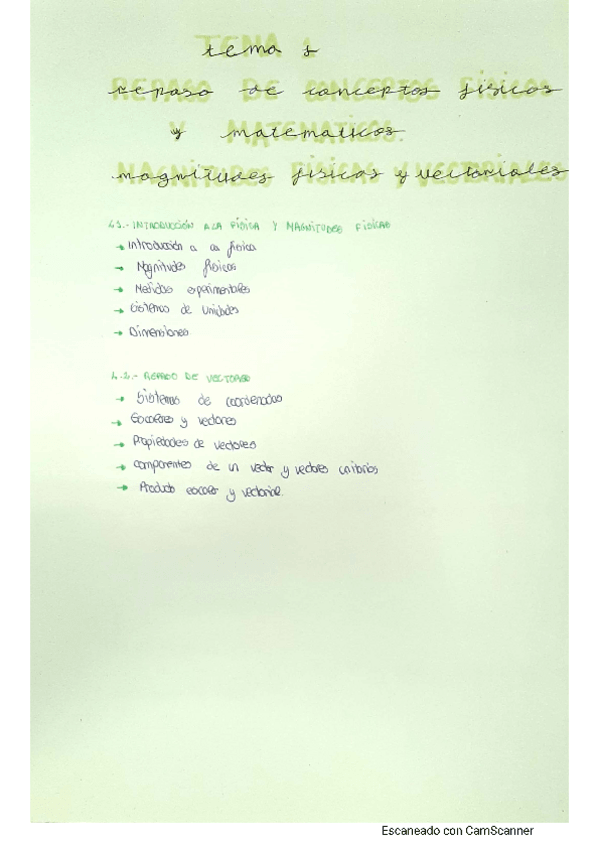 tema 1
repaso de conceptos físicos
y matematicos.
magnitudes físicas y vectoriales
1.1.- INTRODUCCIÓN A LA FÍSICA Y MAGNITUDES FÍSICAS
→ Introducción a la física
→ Magnitudes físicas
→ Medidas experimentales
→ Sistemas de unidades
→ Dimensiones
1.2.- REPASO DE VECTORES
→ Sistemas de coordenadas
→ Escalares y vectores
→ Propiedades de vectores
→ componentes de un vector y vectores unitarios
→ Producto escalar y vectorial.
Escaneado con CamScanner